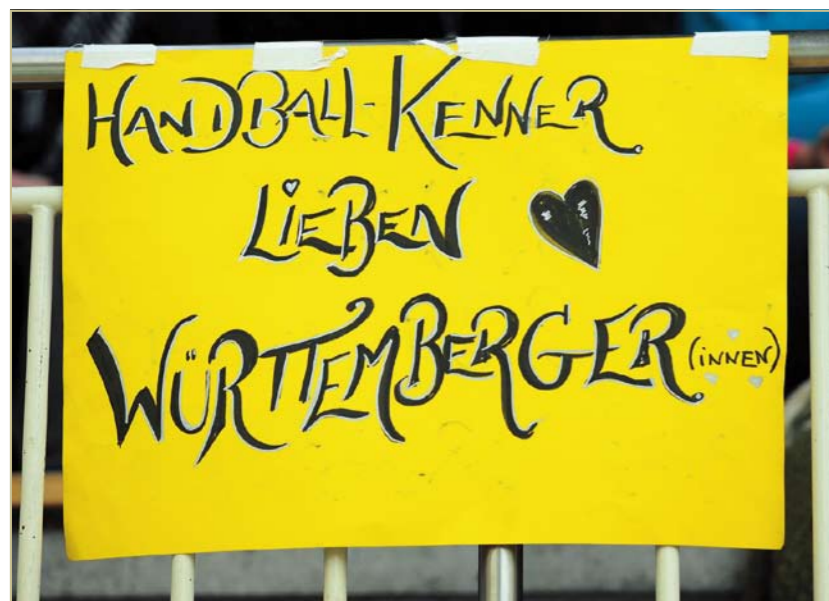 HANDBALL-KENNER
LIEBEN
WÜRTTEMBERGER (iNNEN)